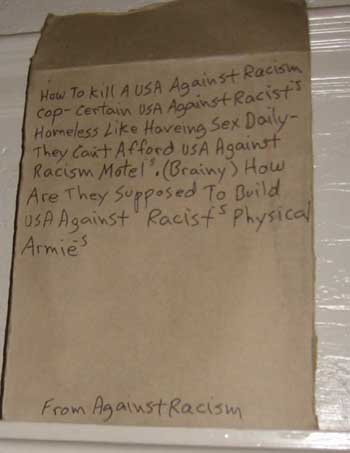 How To Kill A USA Against Racism
Cop- Certain USA Against Racist's
Homeless Like Haveing Sex Daily-
They Can't Afford USA Against
Racism Motel's. (Brainy) How
Are They Supposed To Build
USA Against Racist's Physical
Armie's
From Against Racism